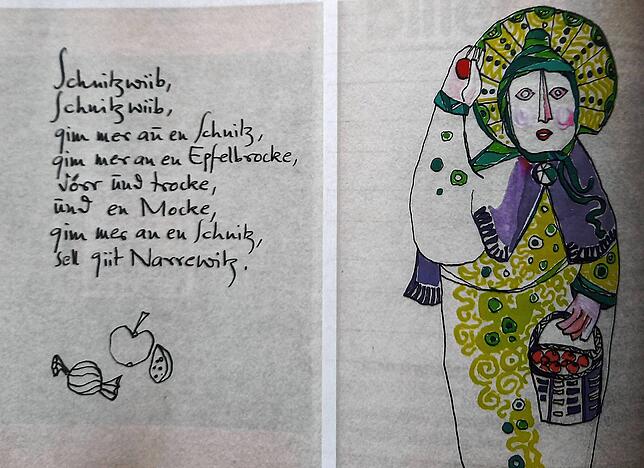 Schnitzwiib,
Schnitzwiib,
gim mer aū en Schnitz,
gim mer an en Epfelbrocke,
dörr ūnd trocke,
ūnd en Mocke,
gim mer an en Schnitz,
sell giit Narrewitz.